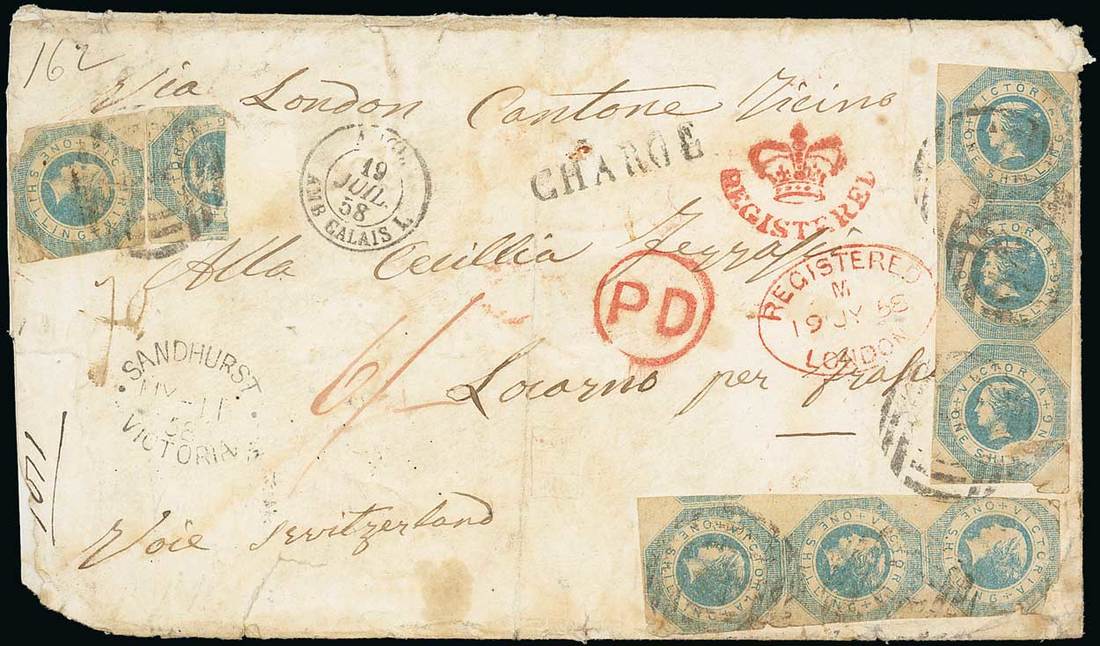 162
Via London Cantone Vicino
CHARGE
REGISTERED
19
JUIL.
58
AMB CALAIS
Alla Cecillia
PD
REGISTERED
M
19 JY 58
LONDON
6/
SANDHURST
11
58
VICTORIA
Locarno per
Voie Sewitzerland
VICTORIA ONE SHILLING
VICTORIA ONE SHILLING
VICTORIA ONE SHILLING
VICTORIA ONE SHILLING
VICTORIA ONE SHILLING
VICTORIA ONE SHILLING
VICTORIA ONE SHILLING